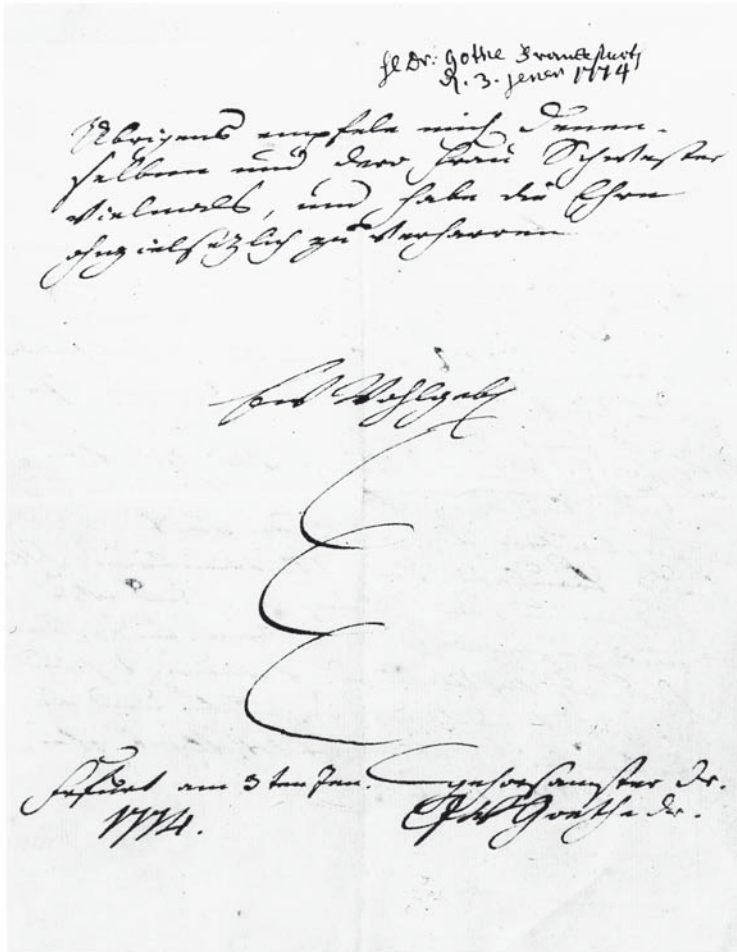 H Dr: Gothe Franckfurth
d. 3. Jener 1774
Übrigens empfele mich Denen-
selben und dero Frau Schwester
Vielmals, und habe die Ehre
zu Verharren
Ew Wohlgeb
Frfurt am 3ten Jen. gehorsamster Dr.
1774. Goethe Dr.